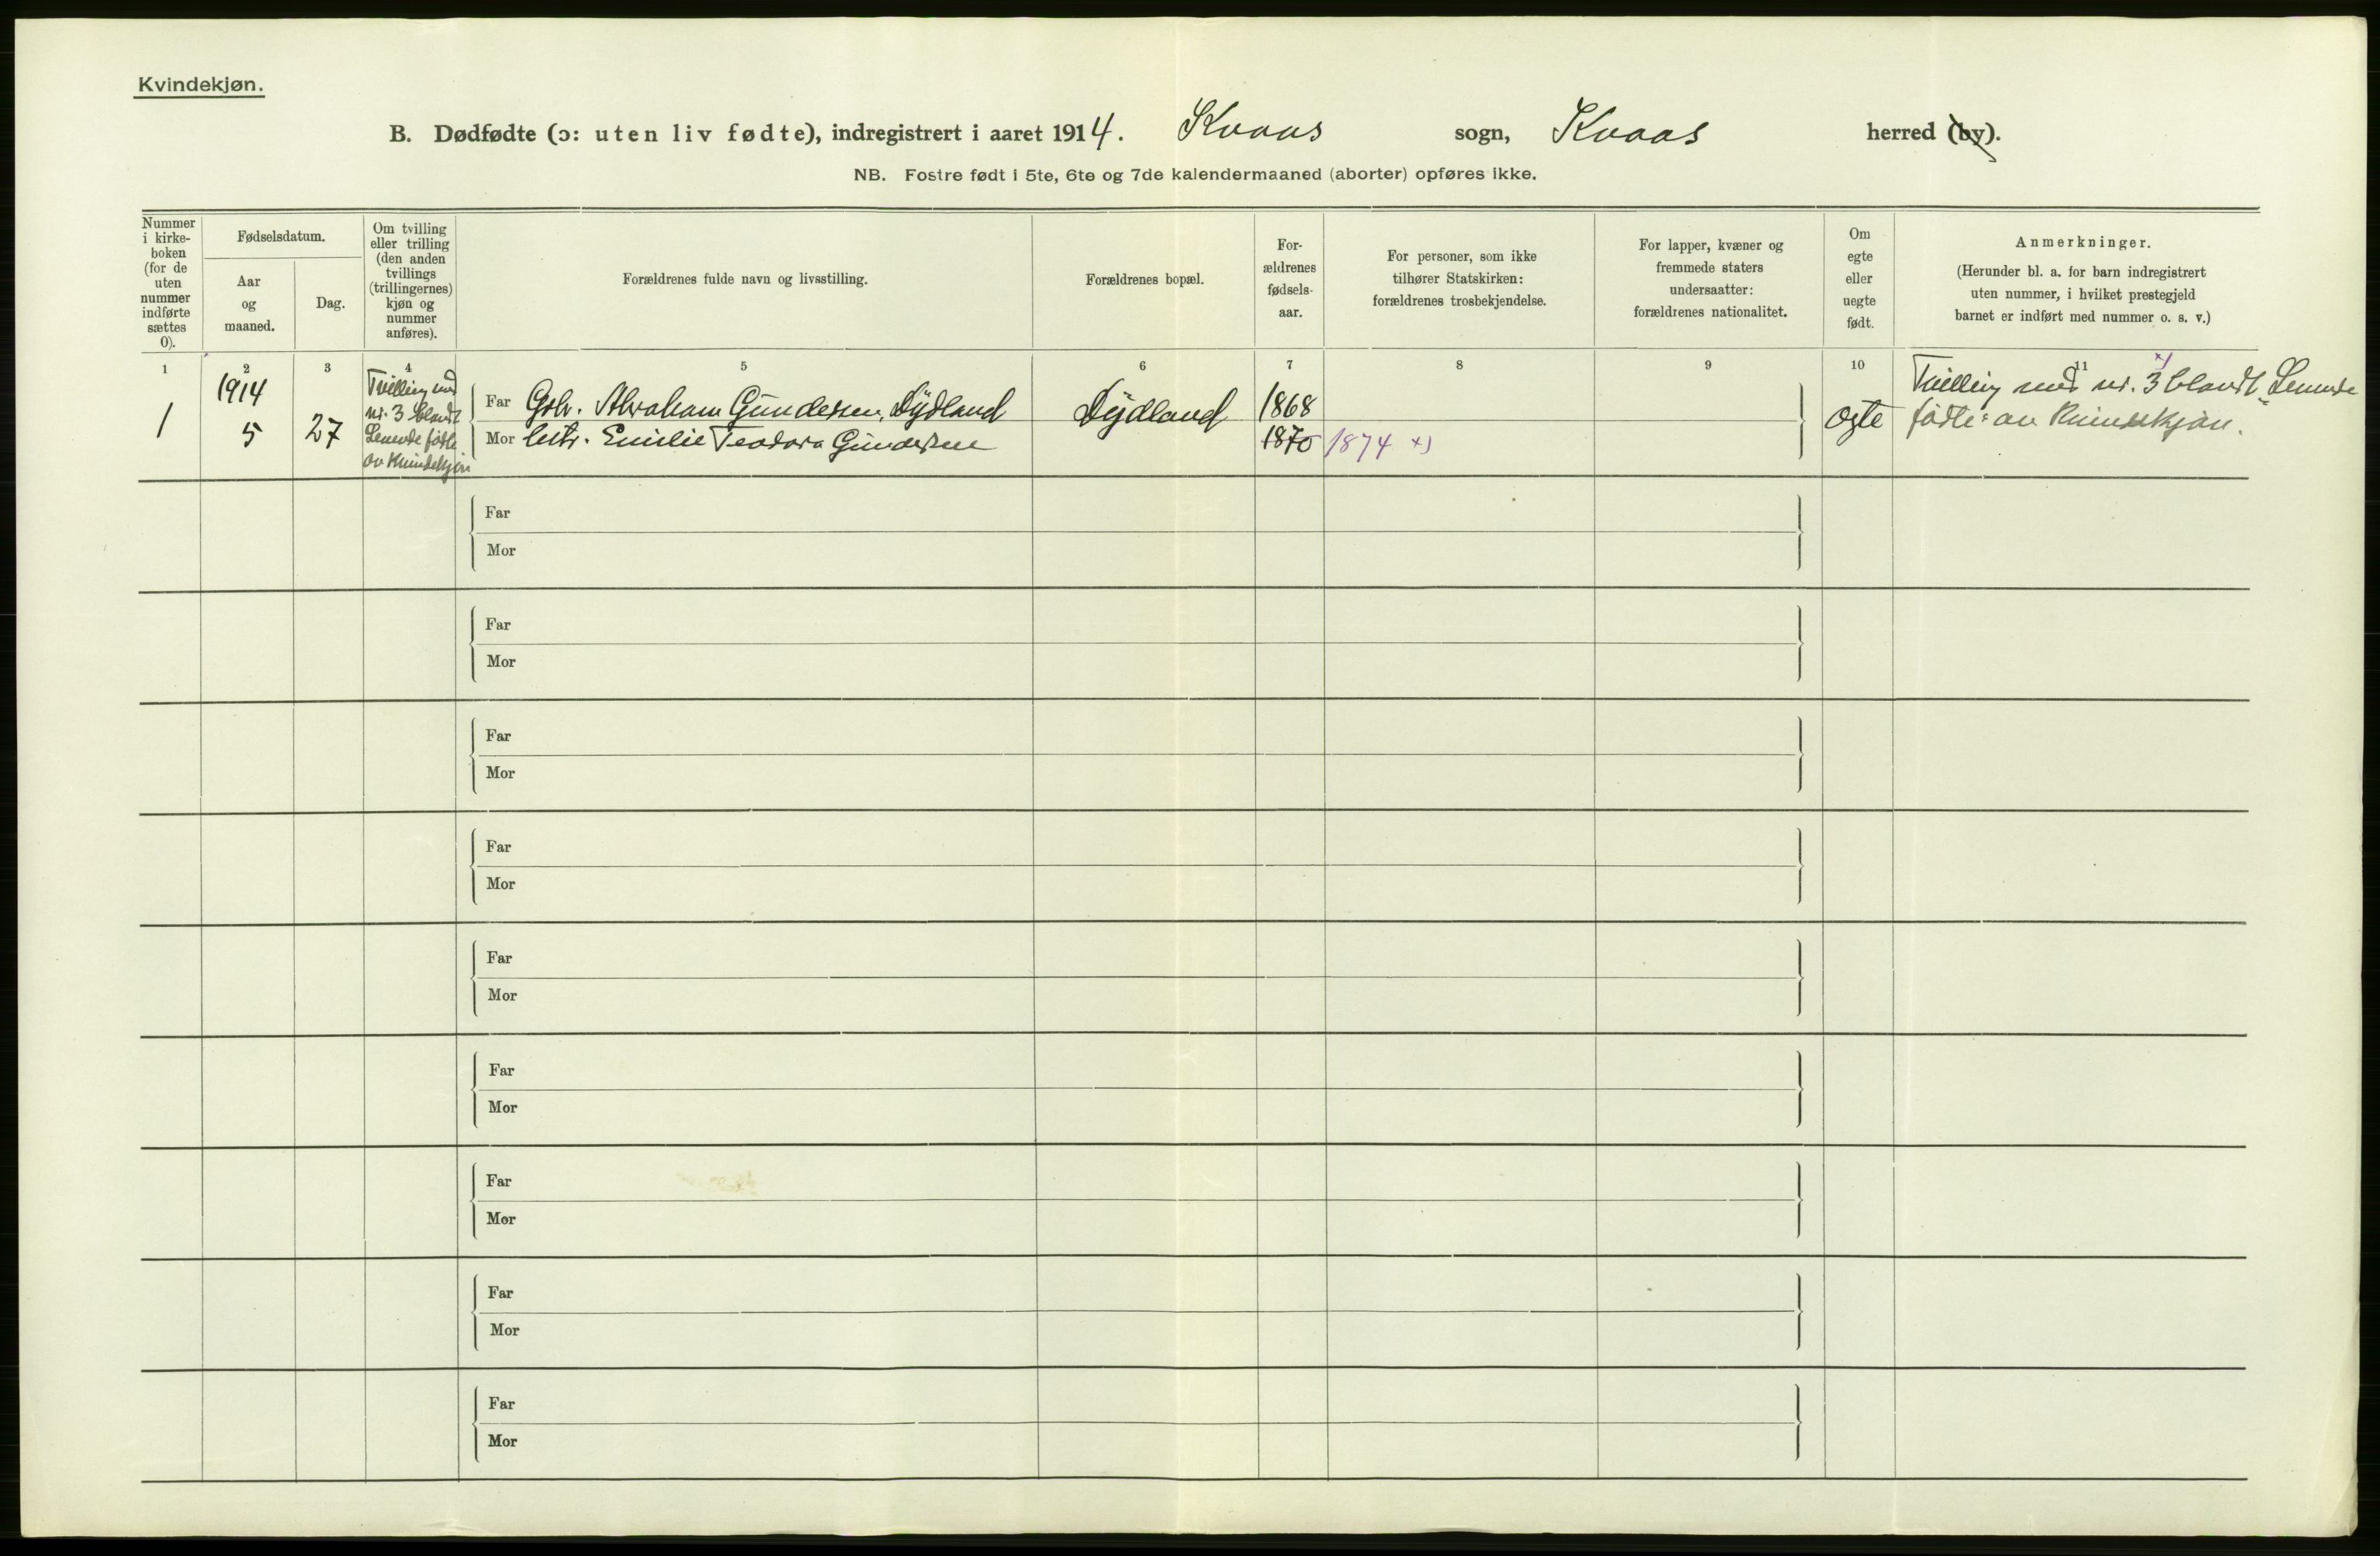 Kvindekjøn.
B. Dødfødte (ɔ: uten liv fødte), indregistrert i aaret 1914. Kvaas sogn, Kvaas herred (by).
NB. Fostre født i 5te, 6te og 7de kalendermaaned (aborter) opføres ikke.
Nummer
i kirke-
boken
(for de
uten
nummer
indførte
sættes
0).
Fødselsdatum.
Aar
og
maaned.
Dag.
Om tvilling
eller trilling
(den anden
tvillings
(trillingernes)
kjøn og
nummer
anføres).
Forældrenes fulde navn og livsstilling.
Forældrenes bopæl.
For-
ældrenes
fødsels-
aar.
For personer, som ikke
tilhører Statskirken:
forældrenes trosbekjendelse.
For lapper, kvæner og
fremmede staters
undersaatter:
forældrenes nationalitet.
Om
egte
eller
uegte
født.
Anmerkninger.
(Herunder bl. a. for barn indregistrert
uten nummer, i hvilket prestegjeld
barnet er indført med nummer o. s. v.)
1 2 3 4 5 6 7 8 9 10 11
1
1914
5
27
Tvilling med
nr. 3 blandt
Levende fødte
av Kvindekjøn
Far Gbr. Abraham Gundersen, Dydland
Mor Hustr. Emilie Teodora Gundersen
Dydland
1868
1870 1874 x)
egte
Tvilling med nr. 3 x) blandt Levende
fødte av Kvindekjøn.
Far
Mor
Far
Mor
Far
Mor
Far
Mor
Far
Mor
Far
Mor
Far
Mor
Far
Mor
Far
Mor